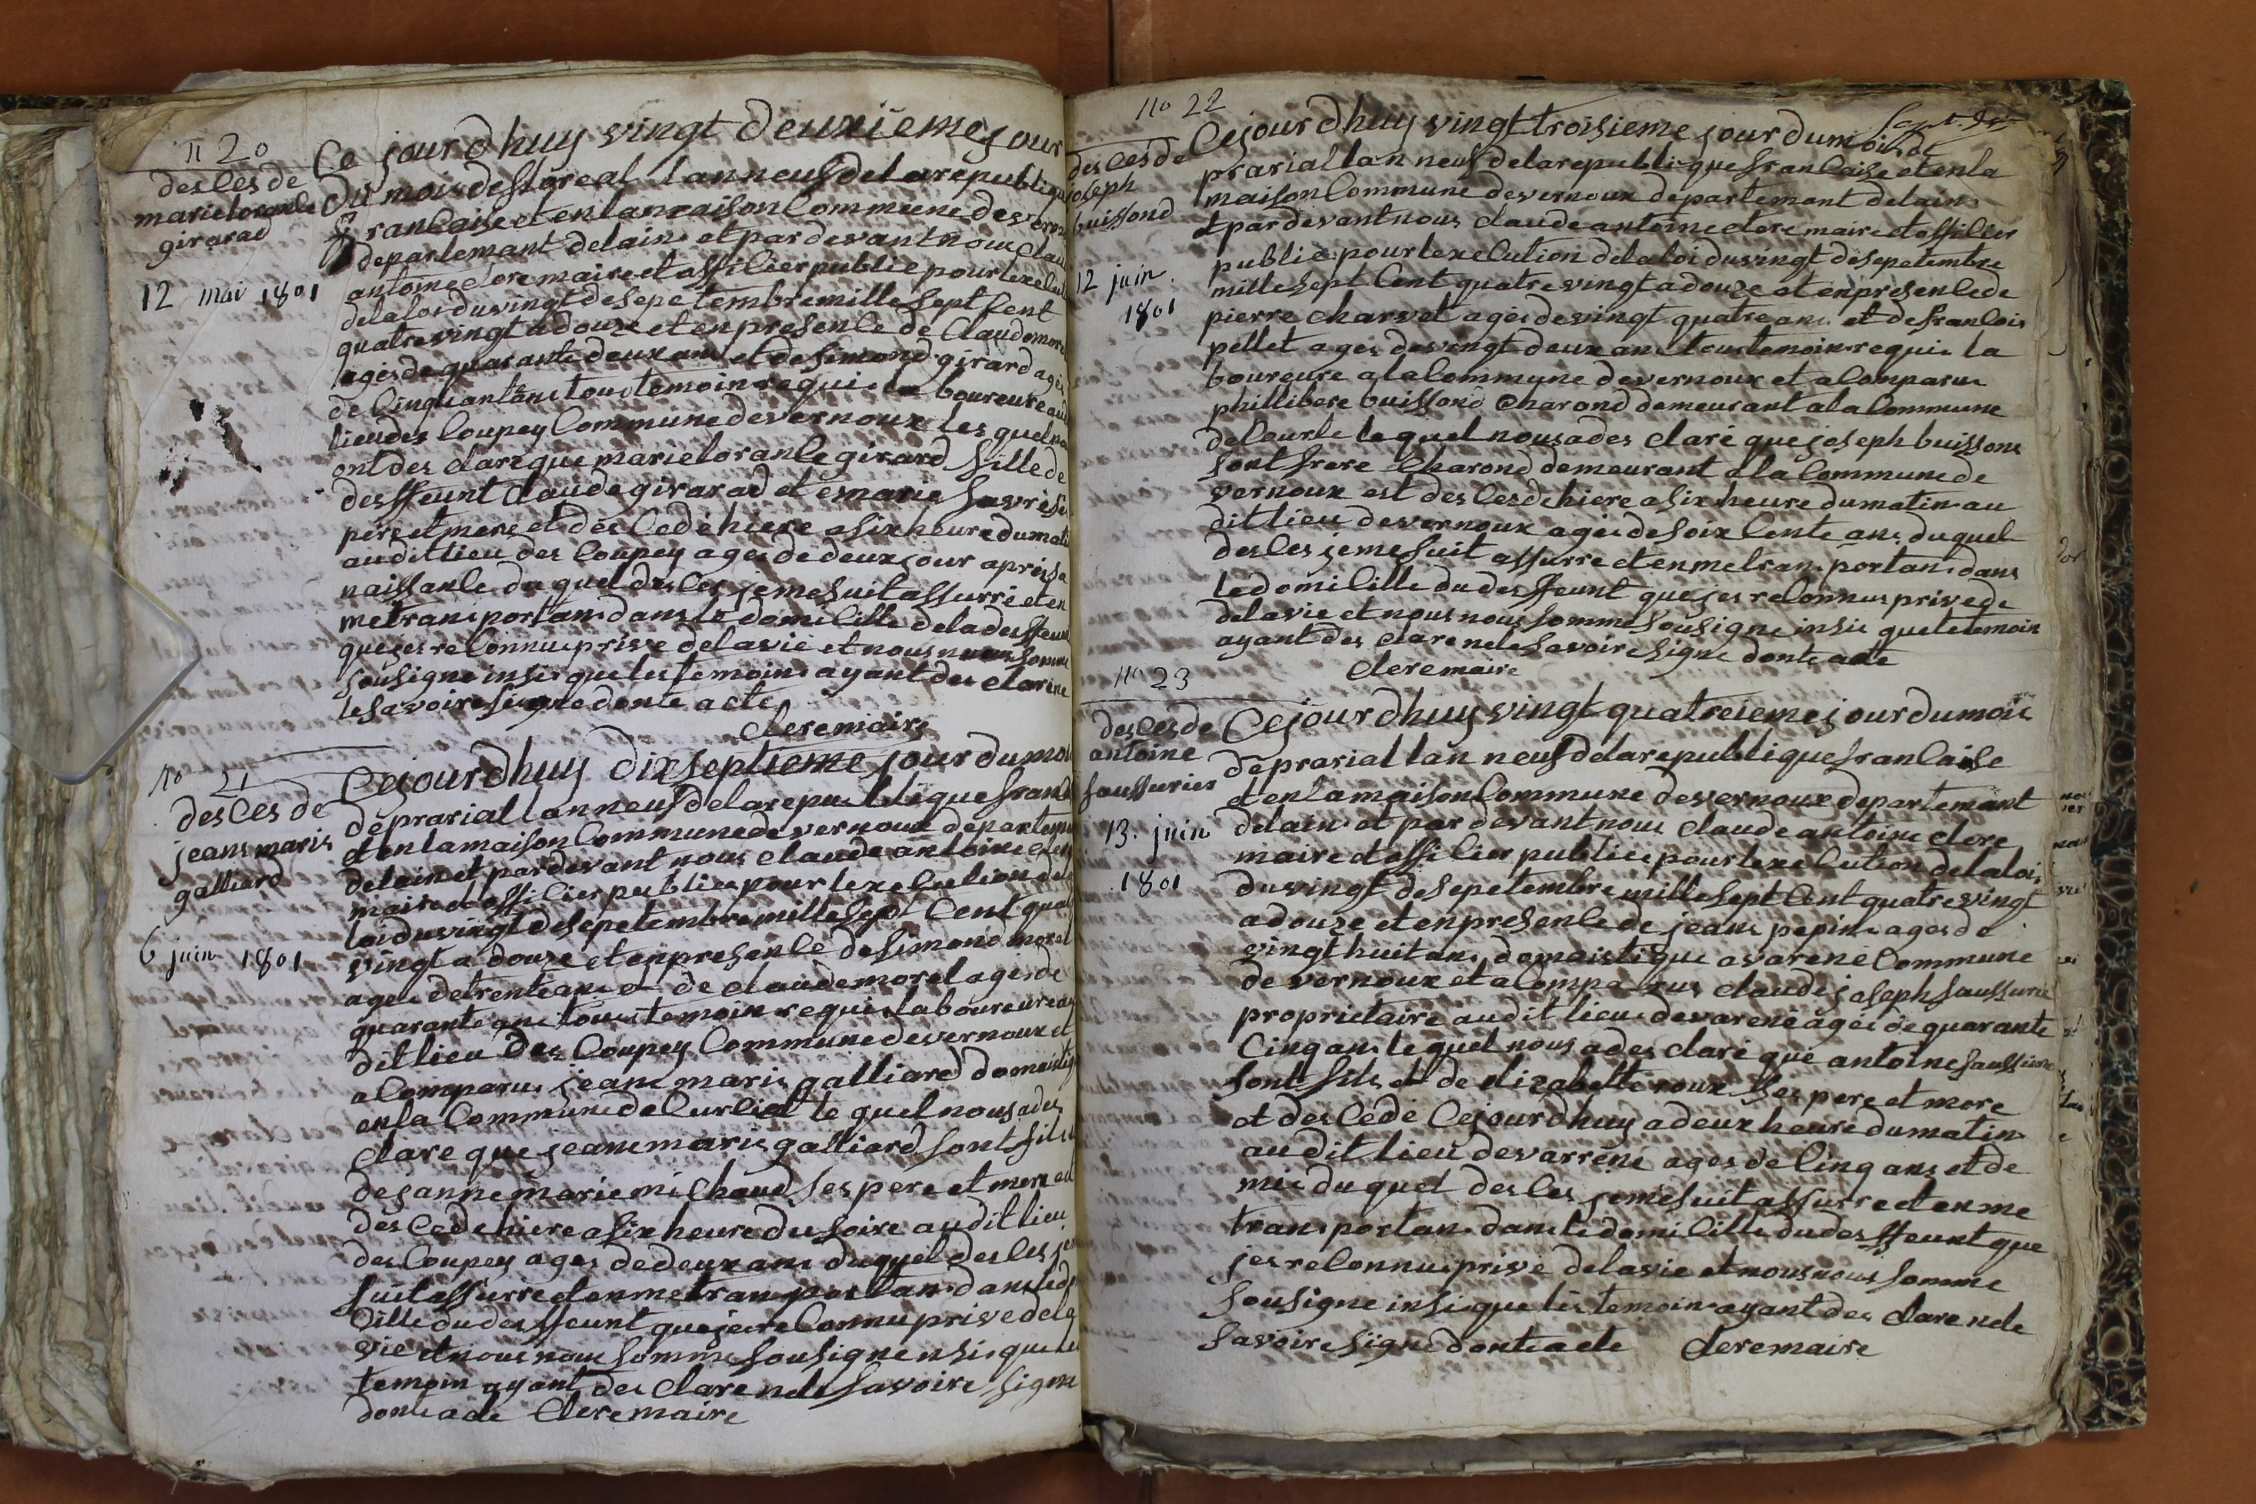 n 20
desces de
marie lorance
girarad
12 mai 1801
Ce jour dhuy vingt deuxieme jour
du mois de floreal lan neuf de la republique
francaise et en la maison Commune de
departemant delain et par devant nous
antoine clere maire et officier public pour
de la loi du vingt de sepetembre mille sept cent
quatre vingt a douze et en presence de Claud
ages de quarante deux ans et de simond girard ages
de cinquant ans tous temoins requis la boureure
lieu des coupey Commune de vernoux les quel
ont des clare que marie lorance girard fille de
deffeunt claude girarad et marie
pere et mere et des cedé hiere a six heure du
au dit lieu des coupey ages de deux jour apres sa
naissance du quel desces je me suit assurré et en
me transportans dans le domicille de la
que jes reconnus prive de la vie et nous nous somme
sousigne insis que les temoins ayant des clare ne
le savoire signe donte acte
clere maire
no 21
desces de
jeans maris
galliard
6 juin 1801
Cejourdhuy dix septieme jour du
de prarial lan neuf de la republique
et en la maison Commune de vernoux
delain et par devant nous claude antoine
maire et officier publice pour lexecution de
loi du vingt de sepetembre mille sept Cent
vingt a douze et en presence de simond morel
ages de trente ans et de claude morel ages de
quarante ans tous temoins requis la boureure
dit lieu des Coupey Commune de vernoux et
a Comparus jeans maris galliard
en la Commune de Curciat le quel nous a des
clare que jeans maris galliard sont fils
de janne marie michaud ses pere et mere
des cede hiere a six heure du soire au dit lieu
des Coupey ages de deux ans du quel desces
suit assurre et en me transportan dans
cille du desffeunt que jes reConnu prive de la
vie et nous nous somme sousigne insi que les
temoin ayant des clare ne le savoire signe
donte acte clere maire
no 22
desces de
joseph
buissond
12 juin
1801
Cejour dhuy vingt troisieme jour du mois de
prarial lan neuf de la republique francaise et en la
maison Commune de vernoux departemant delain
et par devant nous claude antoine clere maire et officier
publice pour lexecution de la loi du vingt de sepetembre
mille sept Cent quatre vingt a douze et en presence de
pierre charvet ages de vingt quatre ans et de francois
pellet ages de vingt deux ans tous temoins requis la
boureure a la Commune de vernoux et a Comparus
phillibere buissond charond demeurant a la Commune
de Courte le quel nous a des claré que joseph buissond
sont frere charond demeurant a la Commune de
vernoux est des cede hiere a six heure du matin au
dit lieu de vernoux ages de soix Cente ans du quel
desces je me suit assurre et en me transportans dans
le domicille du desffeunt que jes reConnus prive de
de la vie et nous nous somme sousigne insi que le temoin
ayant des clare ne le savoire signe donte acte
clere maire
no 23
desces de
antoine
faussurier
13 juin
1801
Cejour dhuy vingt quatreieme jour du mois
de prarial lan neuf de la republique francaise
et en la maison Commune de vernoux departemant
delain et par devant nous claude antoine clere
maire et officier publice pour lexecution de la loi
du vingt de sepetembre mille sept Cent quatre vingt
a douze et en presence de jeans pepin ages de
vingt huit ans domaistique a varene Commune
de vernoux et a Comparus claude joseph faussurie
proprietaire au dit lieu de varene ages de quarante
cinq ans le quel nous a des claré que antoine
sont fils et de elizabette roux ses pere et mere
et des cedé Cejourdhuy a deux heure du matin
au dit lieu de varrene ages de cinq ans et de
mie du quel desces je me suit assurre et en me
transportans dans le domicille du desffeunt que
jes reConnus prive de la vie et nous nous somme
sousigne insi que les temoin ayant des clare ne le
savoire signe donte acte clere maire